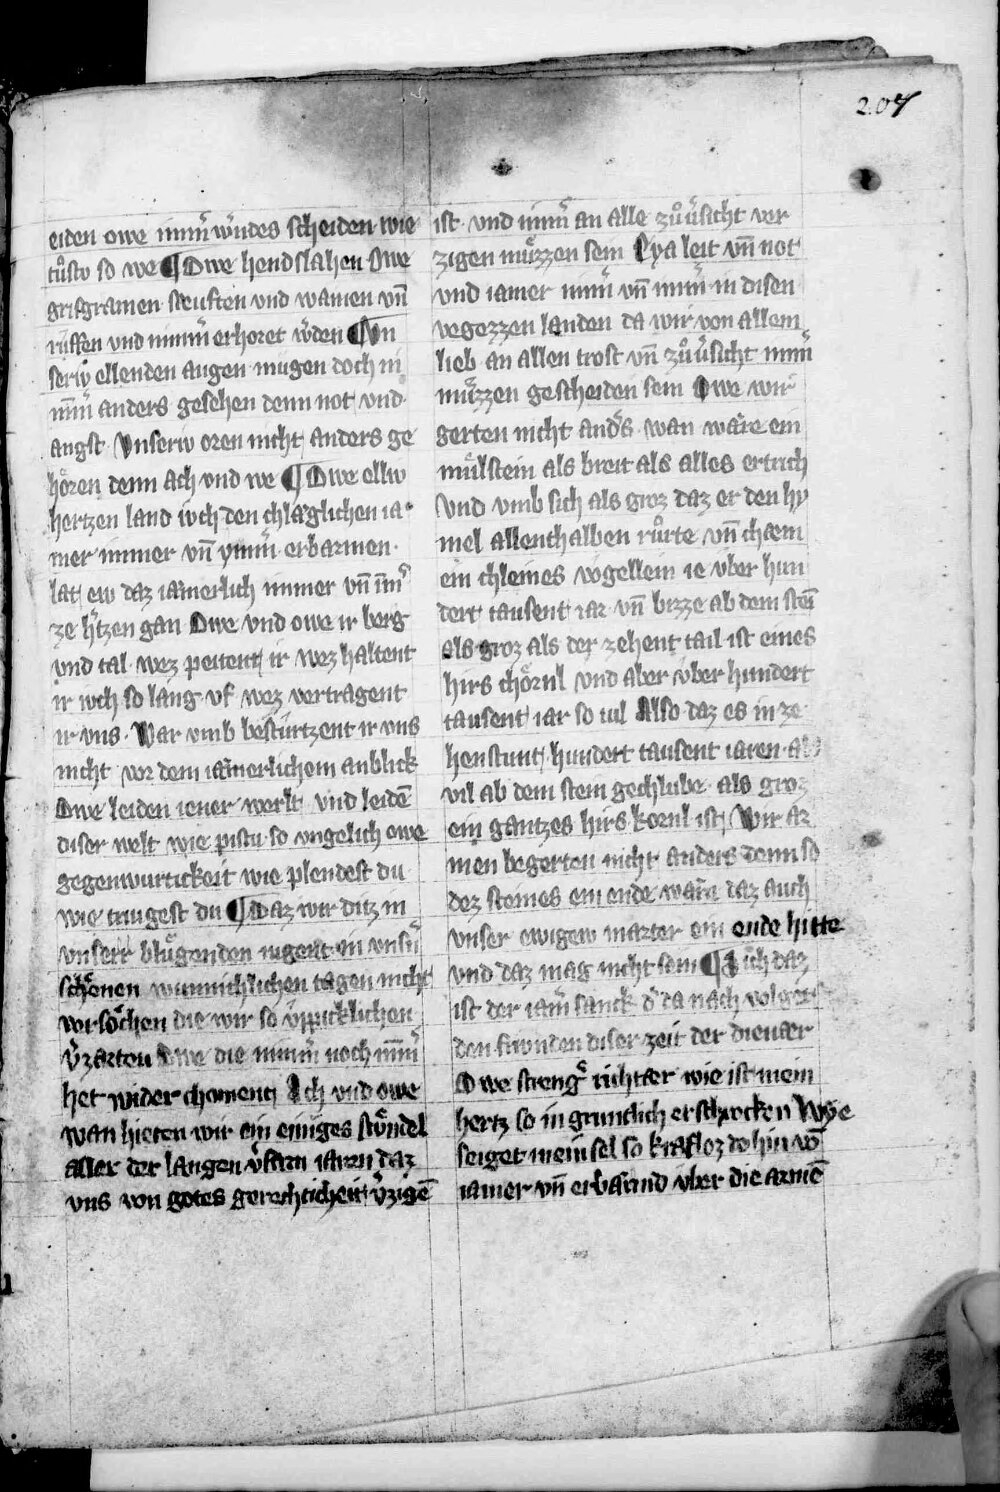 207
eiden owe nim̄ w̄des scheiden wie
tuͦstv so we ¶ Owe hend slahen Owe
grisgramen seuften vnd wainen vn̄
ruͤffen vnd nim̄ erhoret w̄den ¶ Vn
seriv ellenden augen mugen doch ni
m̄ anders gesehen denn not vnd
angst · Vnseriv oren nicht anders ge
hoͤren denn ach vnd we ¶ Owe elliv
hertzen land ivch den chlaglichen ia
mer immer vn̄ ym̄ erbarmen ·
lat ew daz iaͤmerlich immer vn̄ im̄
ze h̄tzen gan Owe vnd owe ir berg
vnd tal · wez peitent ir wez haltent
ir ivch so lang vf wez vertragent
ir vns · War vmb besturtzent ir vns
nicht vor dem iaͤmerlichem anblick
Owe leiden iener werlt vnd leidē
diser welt wie pistu so vngelich owe
gegenwurtickeit wie plendest du
wie triugest du ¶ Daz wir ditz in
vnserr bluͤgenden iugent in vnsn̄
schoͤnen wunnichlichen tagen nicht
vorsaͤchen die wir so v̄ppicklichen
v̄zarten Owe die nim̄ noch nim̄
het wider choment Ach vnd owe
wan hieten wir ein einiges stuͤndel
aller der langen v̄larn iaren daz
vns von gotes gerechticheit v̄zigē
ist · vnd nim̄ an alle zuͦv̄sicht ver
zigen muͤzzen sein Eya leit vn̄ not
vnd iamer nim̄ vn̄ nim̄ in disen
vegezzen landen da wir von allem
lieb an allen trost vn̄ zuͦv̄sicht nim̄
muͤzzen gescheiden sein Owe wir
gerten nicht and̄s · wan waͤre ein
muͤlstein als breit als alles ertrich
Vnd vmb sich als groz daz er den hy
mel allenthalben ruͦrte vn̄ chaem
ein chleines vogellein ie vber hun
dert tausent iar vn̄ bizze ab dem stei
als groz als der zehent tail ist eines
hirs choͤrnl vnd aber vber hundert
tausent iar so vil Also daz es in ze
henstunt hundert tausent iaren als
vil ab dem stein gechlube · als groz
ein gantzes hirs kornl ist Wir ar
men begerten nicht anders denn so
dez steines ein ende ware daz auch
vnser ewigew marter ein ende hitte
vnd daz mag nicht sein ¶ Sich daz
ist der iam̄ sanck d̄ da nach volget
den friunden diser zeit der dienaer
Owe strenḡ richter wie ist mein
hertz so in gruntlich erschrocken Wye
seiget mein sel so krafloz do hin vō
iamer vn̄ erbarmd vber die armē